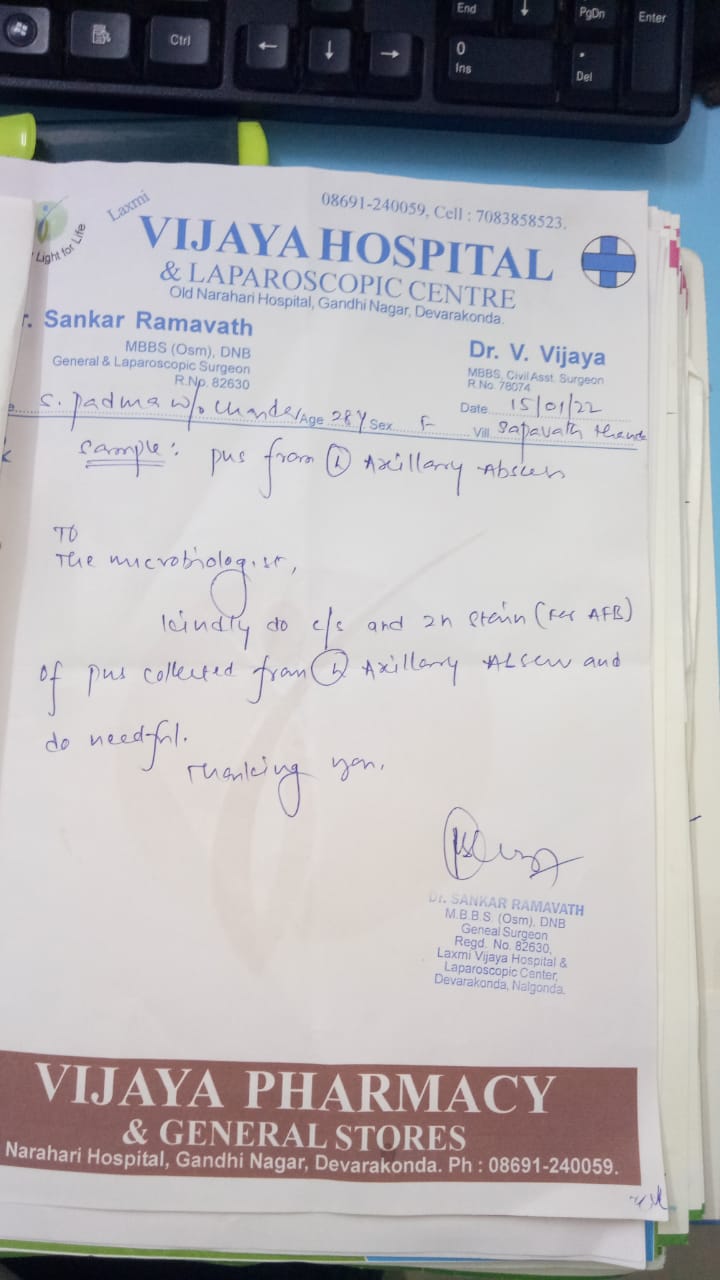 End
PgDn
Enter
Ctrl
0
Ins
.
Del
08691-240059, Cell : 7083858523.
Laxmi
Light for Life
VIJAYA HOSPITAL
& LAPAROSCOPIC CENTRE
Old Narahari Hospital, Gandhi Nagar, Devarakonda.
r. Sankar Ramavath
MBBS (Osm), DNB
General & Laparoscopic Surgeon
R.No. 82630
Dr. V. Vijaya
MBBS, Civil Asst. Surgeon
R.No. 78074
Date 15/01/22
S. Padma w/o Chander Age 28Y Sex F Vill Sapavath thanda
Sample: pus from (L) Axillary Abscess
To
The microbiologist,
kindly do c/s and zn stain (for AFB)
of pus collected from (L) Axillary Abscess and
do needful.
Thanking you.
Dr. SANKAR RAMAVATH
M.B.B.S. (Osm), DNB
Geneal Surgeon
Regd. No. 82630,
Laxmi Vijaya Hospital &
Laparoscopic Center,
Devarakonda, Nalgonda.
VIJAYA PHARMACY
& GENERAL STORES
Narahari Hospital, Gandhi Nagar, Devarakonda. Ph : 08691-240059.